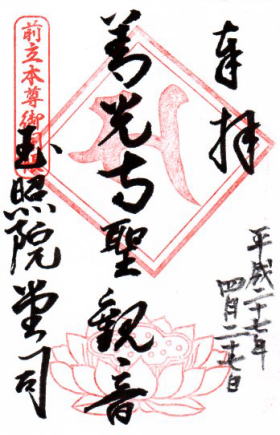 奉拝
平成二十七年
四月二十七日
善光寺聖觀音
前立本尊御開帳
玉照院堂司